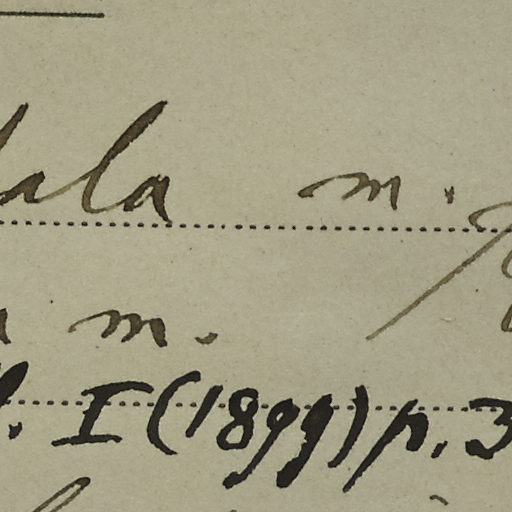 ala m.
m.
I (1899) p. 3